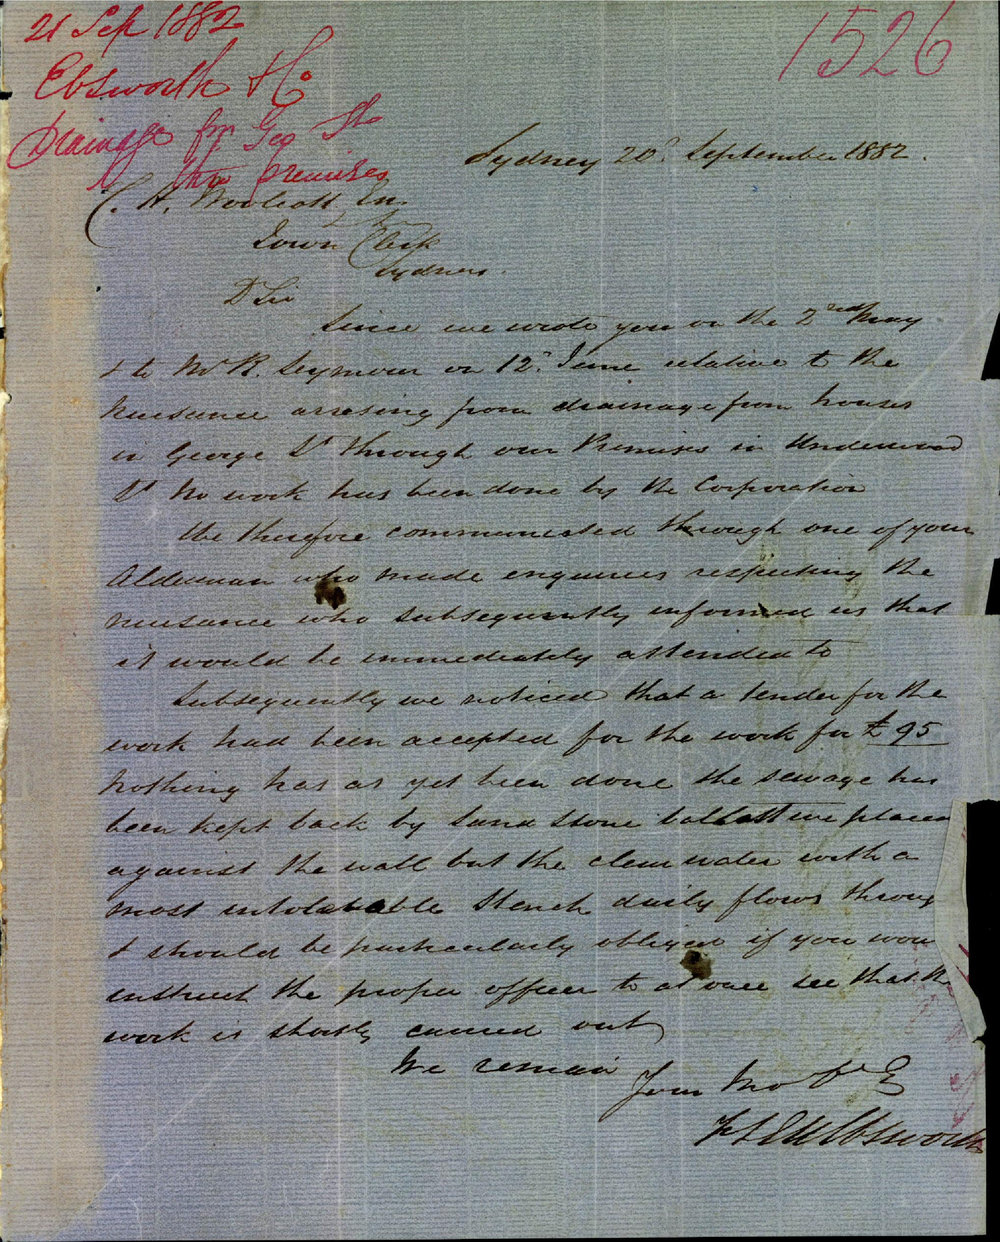 21 Sep 1882
1526
Ebsworth & Co
Drainage fm Geo St
thro premises
Sydney 20th September 1882.
C. H. Woolcott Esq.
Town Clerk
Sydney.
D Sir
Since we wrote you on the 2nd May
& to Mr R. Seymour on 12th June relative to the
nuisance arising from drainage from houses
in George St through our Premises in Underwood
St no work has been done by the Corporation
We therefore communicated through one of your
Alderman who made enquiries respecting the
nuisance who subsequently informed us that
it would be immediately attended to
Subsequently we noticed that a tender for the
work had been accepted for the work for £95
nothing has as yet been done the sewage has
been kept back by Sand stone ballast we placed
against the wall but the clear water with a
most intolerable stench daily flows throug
I should be particularly obliged if you wou
instruct the proper officer to at once see that the
work is shortly carried out
We remain
Your Mo
Ebsworth